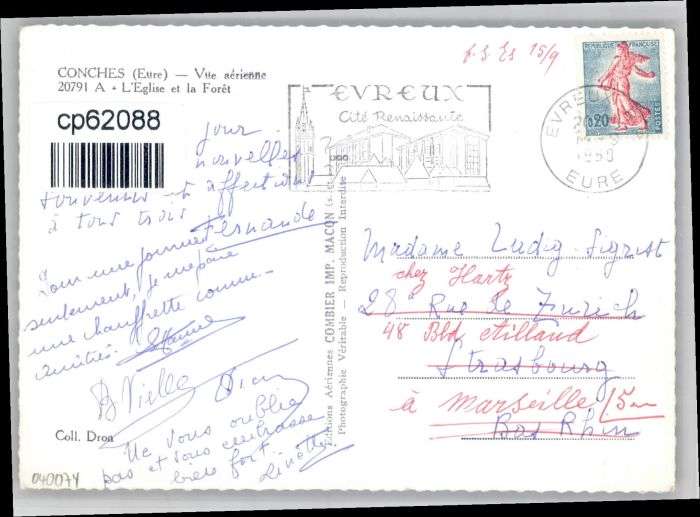 CONCHES (Eure) — Vue aérienne
20791 A - L'Eglise et la Forêt
cp62088
jour
nouvelles
souvenirs et affection
à tous trois
Fernande
Pour une journée
seulement, je me paie
une chauffrette comme
amitiés.
Vielle
Ne vous oublie
pas et vous embrasse
bien fort.
Coll. Dron
040074
Editions Aériennes COMBIER IMP. MACON
Photographie Véritable - Reproduction Interdite
15/9
EVREUX
Cité Renaissante
REPUBLIQUE FRANÇAISE
0,20
POSTES
EVREUX
EURE
Madame Ludig-Sigrist
chez Hartz
28 Rue de Zurich
48 Bld
Strasbourg
à Marseille
Bas Rhin